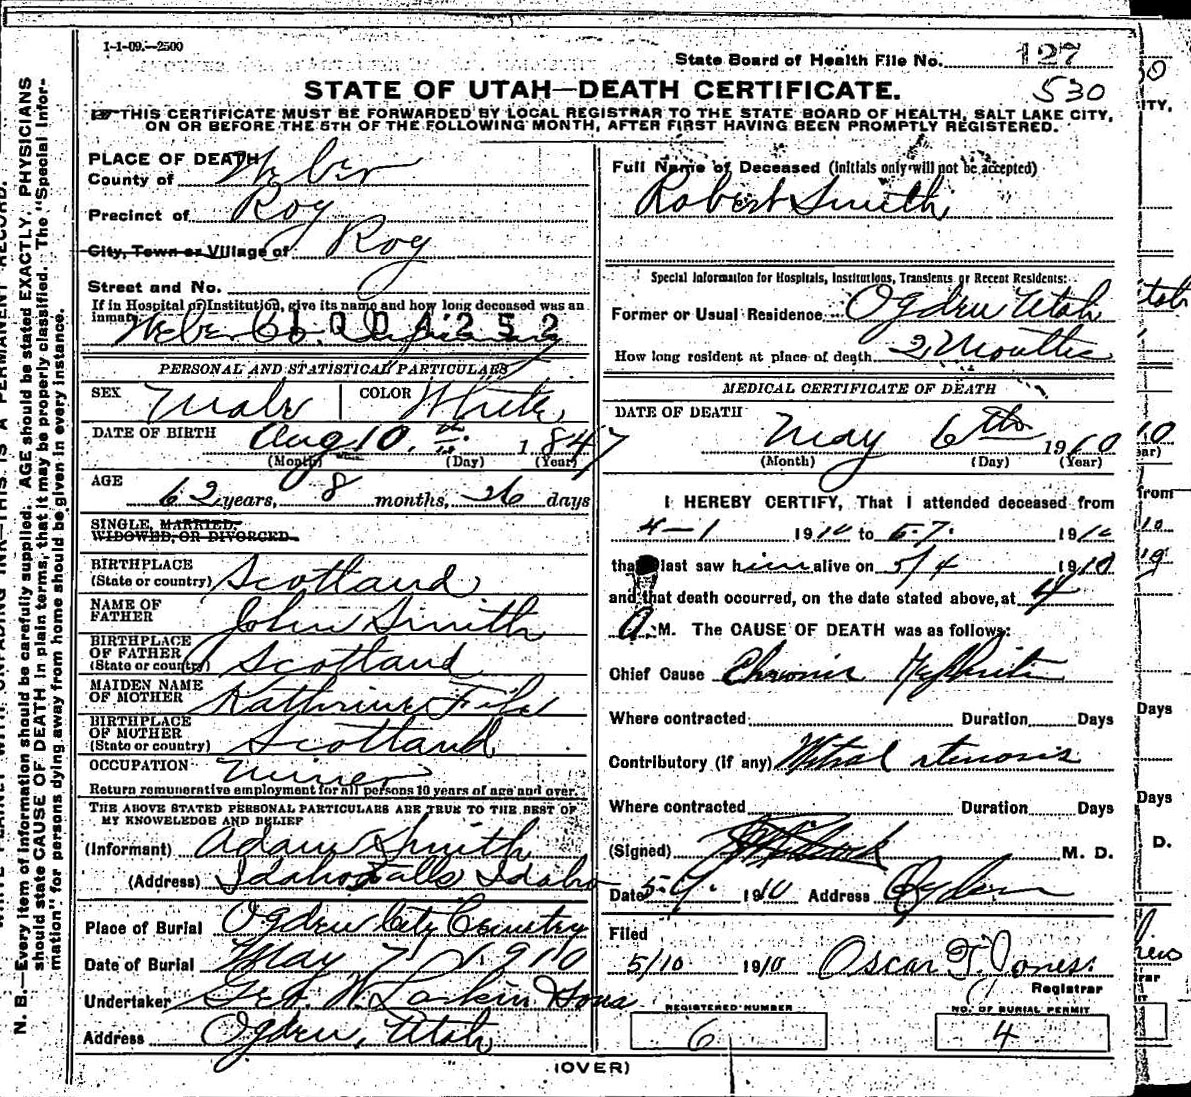 1-1-09.—2500
State Board of Health File No. 127
530
STATE OF UTAH—DEATH CERTIFICATE.
THIS CERTIFICATE MUST BE FORWARDED BY LOCAL REGISTRAR TO THE STATE BOARD OF HEALTH, SALT LAKE CITY,
ON OR BEFORE THE 5TH OF THE FOLLOWING MONTH, AFTER FIRST HAVING BEEN PROMPTLY REGISTERED.
PLACE OF DEATH
County of Weber
Precinct of Roy
City, Town or Village of Roy
Street and No.
If in Hospital or Institution, give its name and how long deceased was an
inmate Weber Co. Infirmary
PERSONAL AND STATISTICAL PARTICULARS
SEX Male COLOR White
DATE OF BIRTH Aug 10. th 1847
(Month) (Day) (Year)
AGE 62 years, 8 months, 26 days
SINGLE, MARRIED,
WIDOWED, OR DIVORCED
BIRTHPLACE
(State or country) Scotland
NAME OF
FATHER John Smith
BIRTHPLACE
OF FATHER
(State or country) Scotland
MAIDEN NAME
OF MOTHER Kathrine Fife
BIRTHPLACE
OF MOTHER
(State or country) Scotland
OCCUPATION Miner
Return remunerative employment for all persons 10 years of age and over.
THE ABOVE STATED PERSONAL PARTICULARS ARE TRUE TO THE BEST OF
MY KNOWLEDGE AND BELIEF
(Informant) Adam Smith
(Address) Idaho Falls Idaho
Place of Burial Ogden City Cemetry
Date of Burial May 7 1910
Undertaker Geo. W. Larkin Sons
Address Ogden, Utah
Full Name of Deceased (Initials only will not be accepted)
Robert Smith
Special Information for Hospitals, Institutions, Transients or Recent Residents:
Former or Usual Residence Ogden Utah
How long resident at place of death 2 Months
MEDICAL CERTIFICATE OF DEATH
DATE OF DEATH
May 6th 1910
(Month) (Day) (Year)
I HEREBY CERTIFY, That I attended deceased from
4-1 1910 to 5-7. 1910
that I last saw him alive on 5/4 1910
and that death occurred, on the date stated above, at 4
A M. The CAUSE OF DEATH was as follows:
Chief Cause Chronic Nephritis
Where contracted Duration Days
Contributory (if any) Mitral stenosis
Where contracted Duration Days
(Signed) M. D.
Date 5-7. 1910 Address Ogden
Filed
5/10 1910 Oscar T. Jones.
Registrar
REGISTERED NUMBER
6
NO. OF BURIAL PERMIT
4
(OVER)
N. B.—Every item of information should be carefully supplied. AGE should be stated EXACTLY. PHYSICIANS
should state CAUSE OF DEATH in plain terms, that it may be properly classified. The "Special Infor-
mation" for persons dying away from home should be given in every instance.
ITY,
from
Days
Days
D.